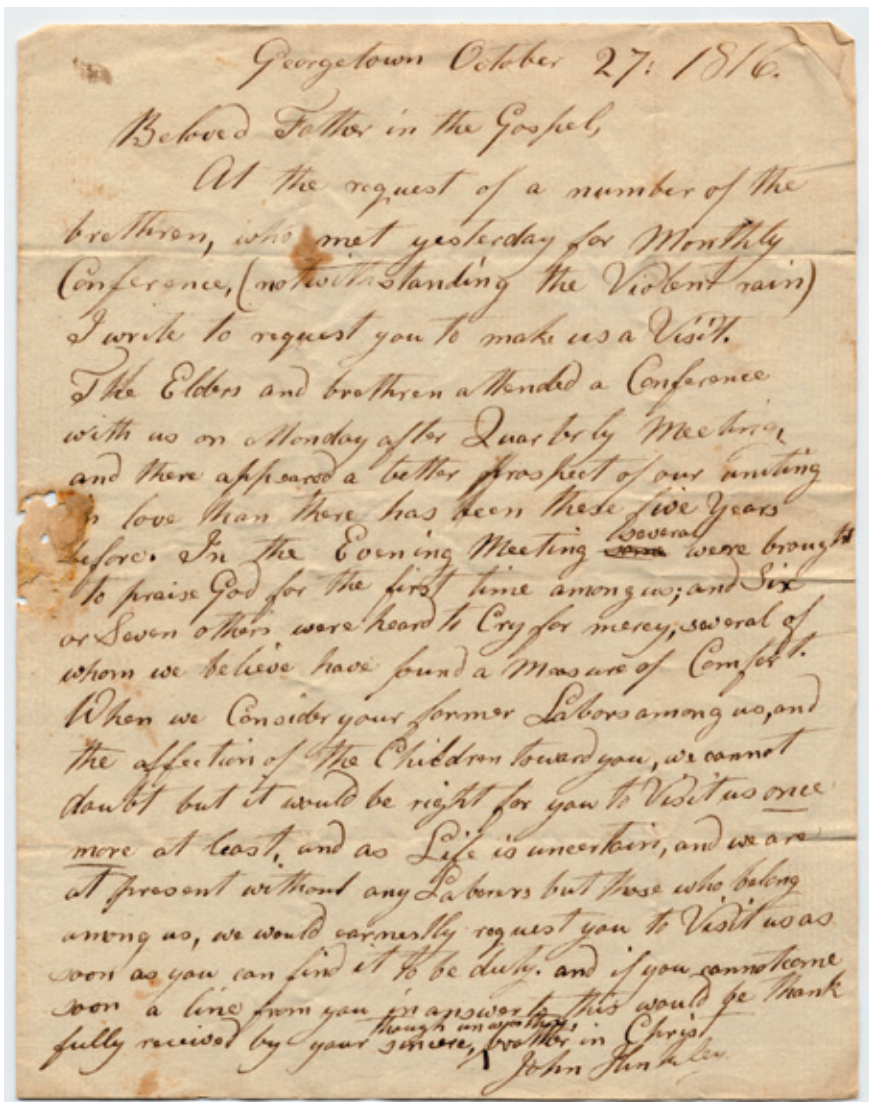 Georgetown October 27: 1816.
Beloved Father in the Gospel,
At the request of a number of the
brethren, who met yesterday for Monthly
Conference, (notwithstanding the Violent rain)
I write to request you to make us a Visit.
The Elders and brethren attended a Conference
with us on Monday after Quarterly Meeting,
and there appeared a better prospect of our uniting
in love than there has been these five Years
before. In the Evening Meeting some several were brought
to praise God for the first time among us; and Six
or Seven others were heard to Cry for mercy, several of
whom we believe have found a Measure of Comfort.
When we Consider your former Labors among us, and
the affection of the Children toward you, we cannot
doubt but it would be right for you to Visit us once
more at least, and as Life is uncertain, and we are
at present without any Laborers but those who belong
among us, we would earnestly request you to Visit us as
soon as you can find it to be duty. and if you cannot come
soon a line from you in answer to this would be thank
fully received by your sincere, though unworthy brother in Christ
John Hinkley